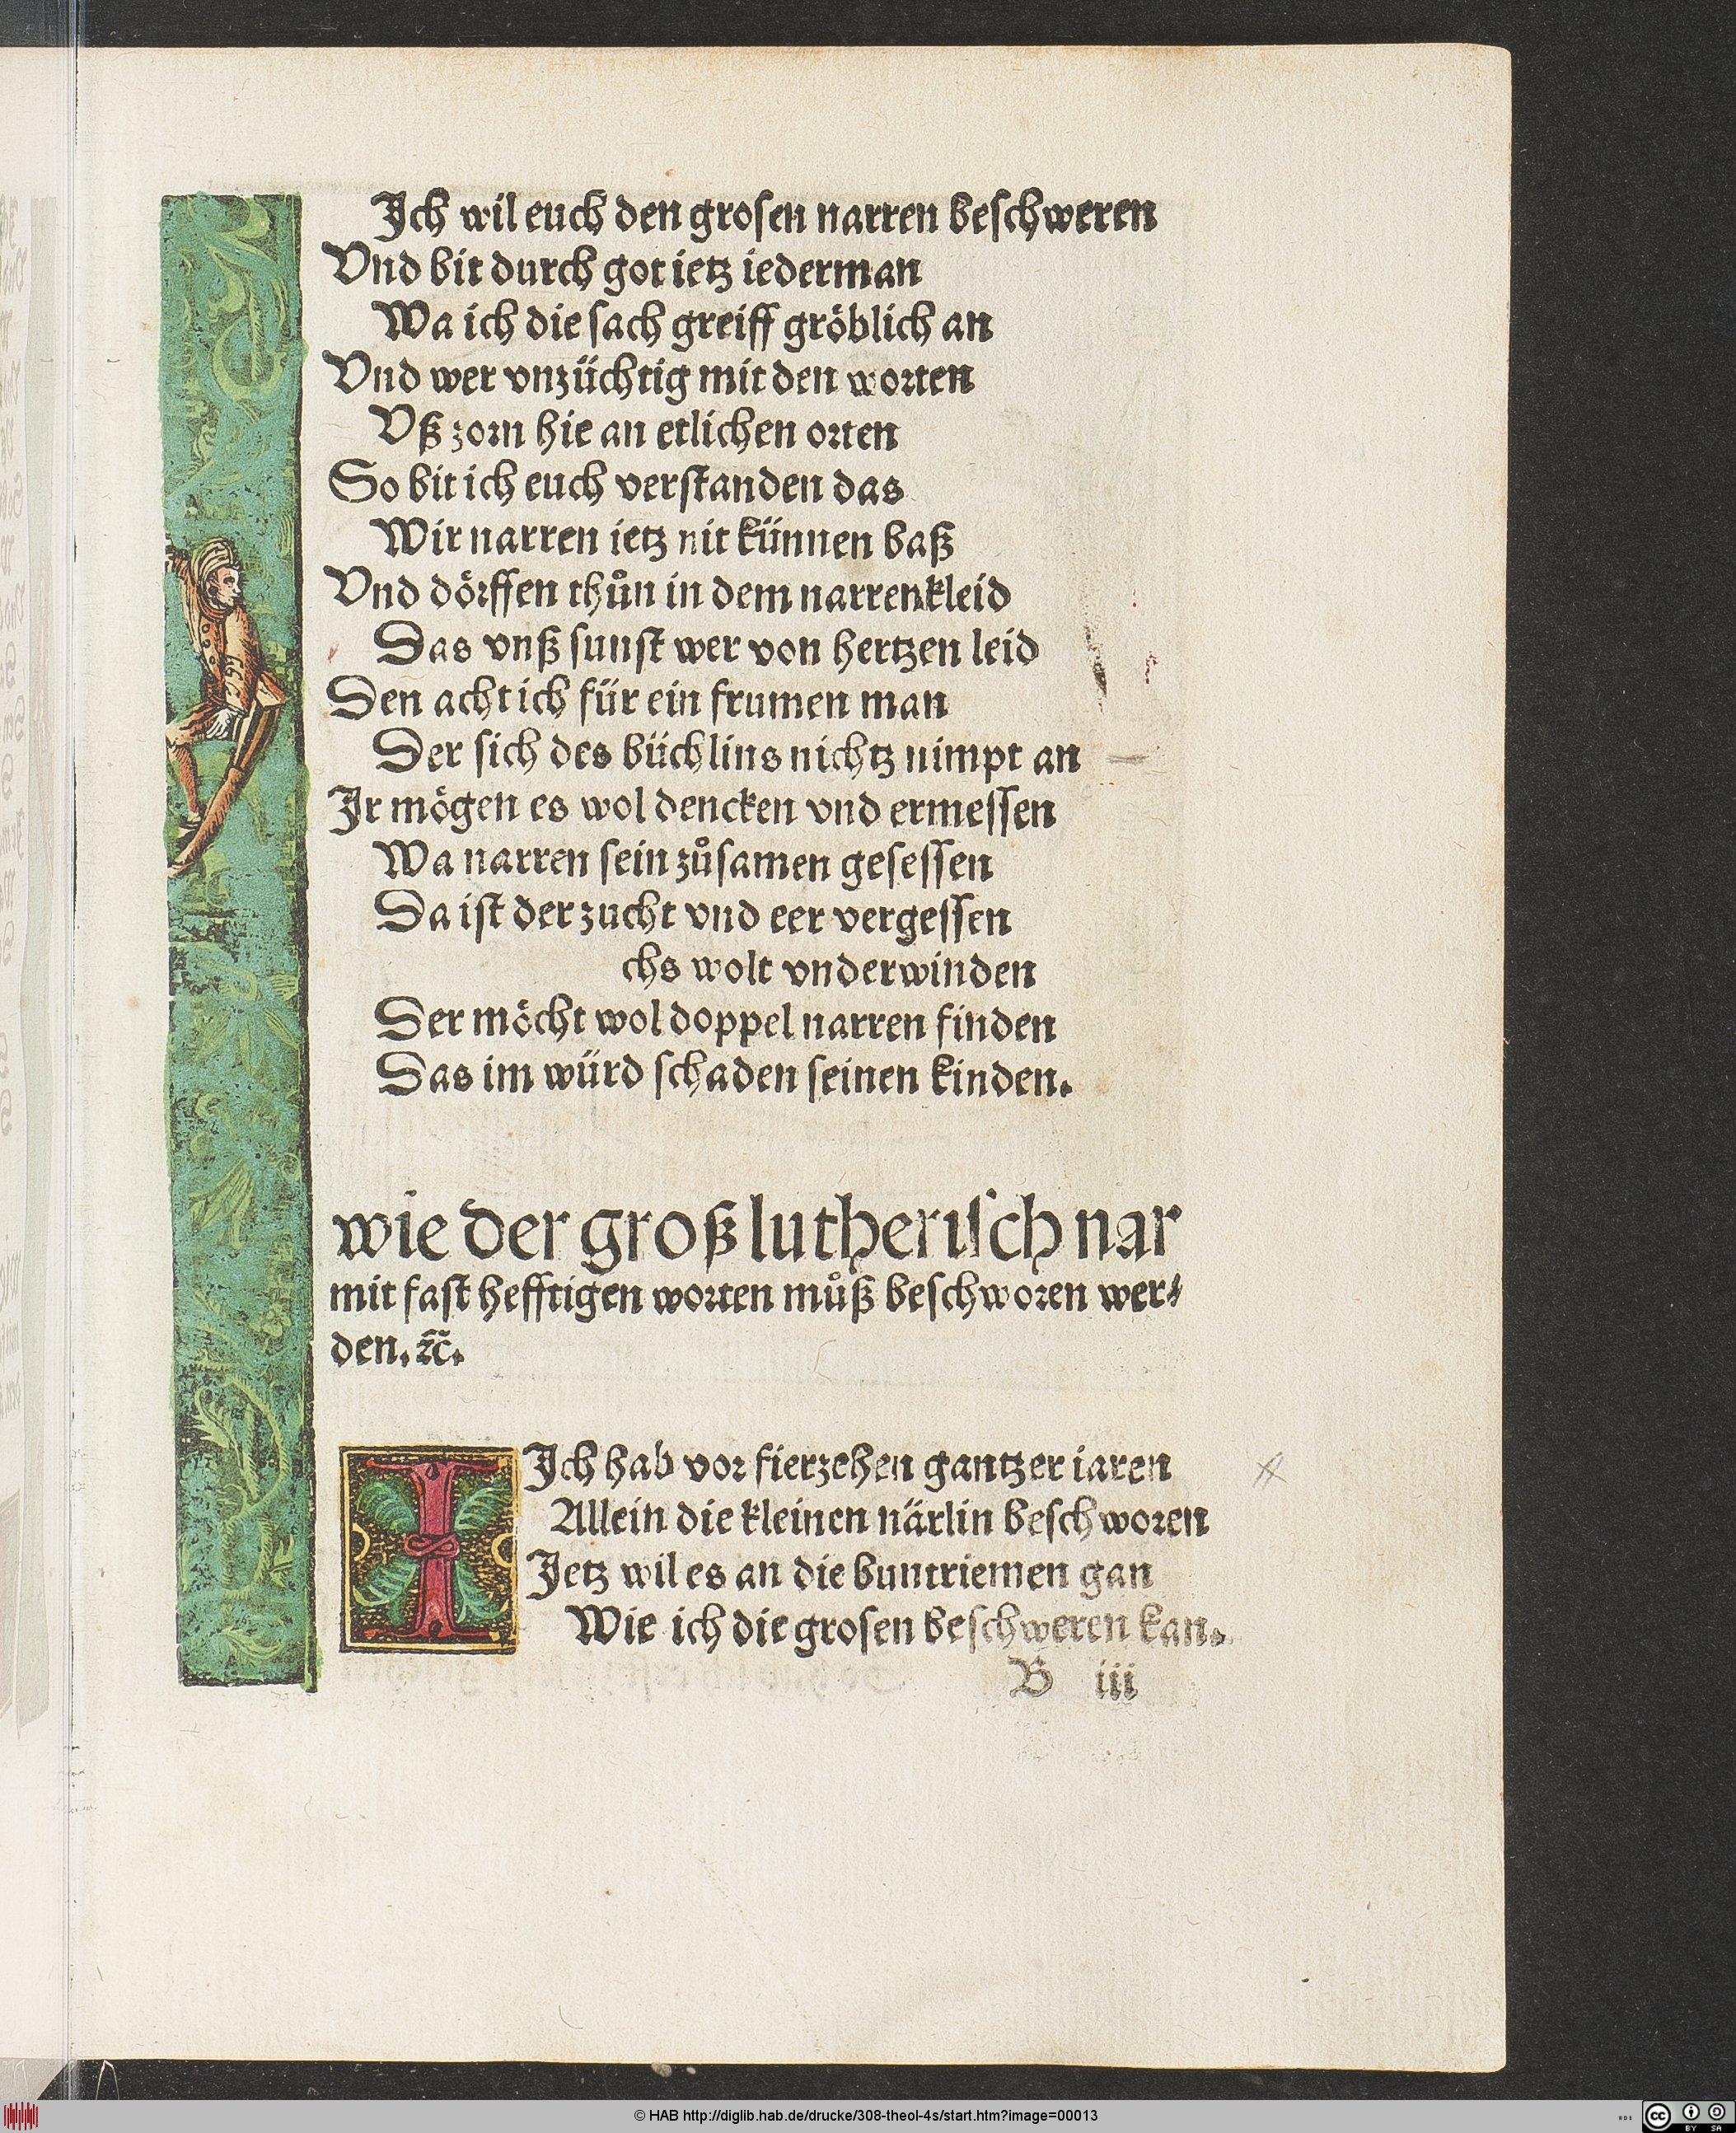 Ich wil euch den grosen narren beſchweren
Vnd bit durch got ietz iederman
Wa ich die ſach greiff gröblich an
Vnd wer vnzüchtig mit den worten
Vß zorn hie an etlichen orten
So bit ich euch verſtanden das
Wir narren ietz nit künnen baß
Vnd dörffen thůn in dem narrenkleid
Das vnß ſunſt wer von hertzen leid
Den acht ich für ein frumen man
Der ſich des büchlins nichtz nimpt an
Ir mögen es wol dencken vnd ermeſſen
Wa narren ſein zůſamen geſeſſen
Da iſt der zucht vnd eer vergeſſen
chs wolt vnderwinden
Der möcht wol doppel narren finden
Das im würd ſchaden ſeinen kinden.
wie der groß lutheriſch nar
mit faſt hefftigen worten můß beſchworen wer⸗
den. ꝛc̃.
I Ich hab vor fierzehen gantzer iaren
Allein die kleinen närlin beſchworen
Jetz wil es an die buntriemen gan
Wie ich die groſen beſchweren kan.
B iii
© HAB http://diglib.hab.de/drucke/308-theol-4s/start.htm?image=00013
cc BY SA